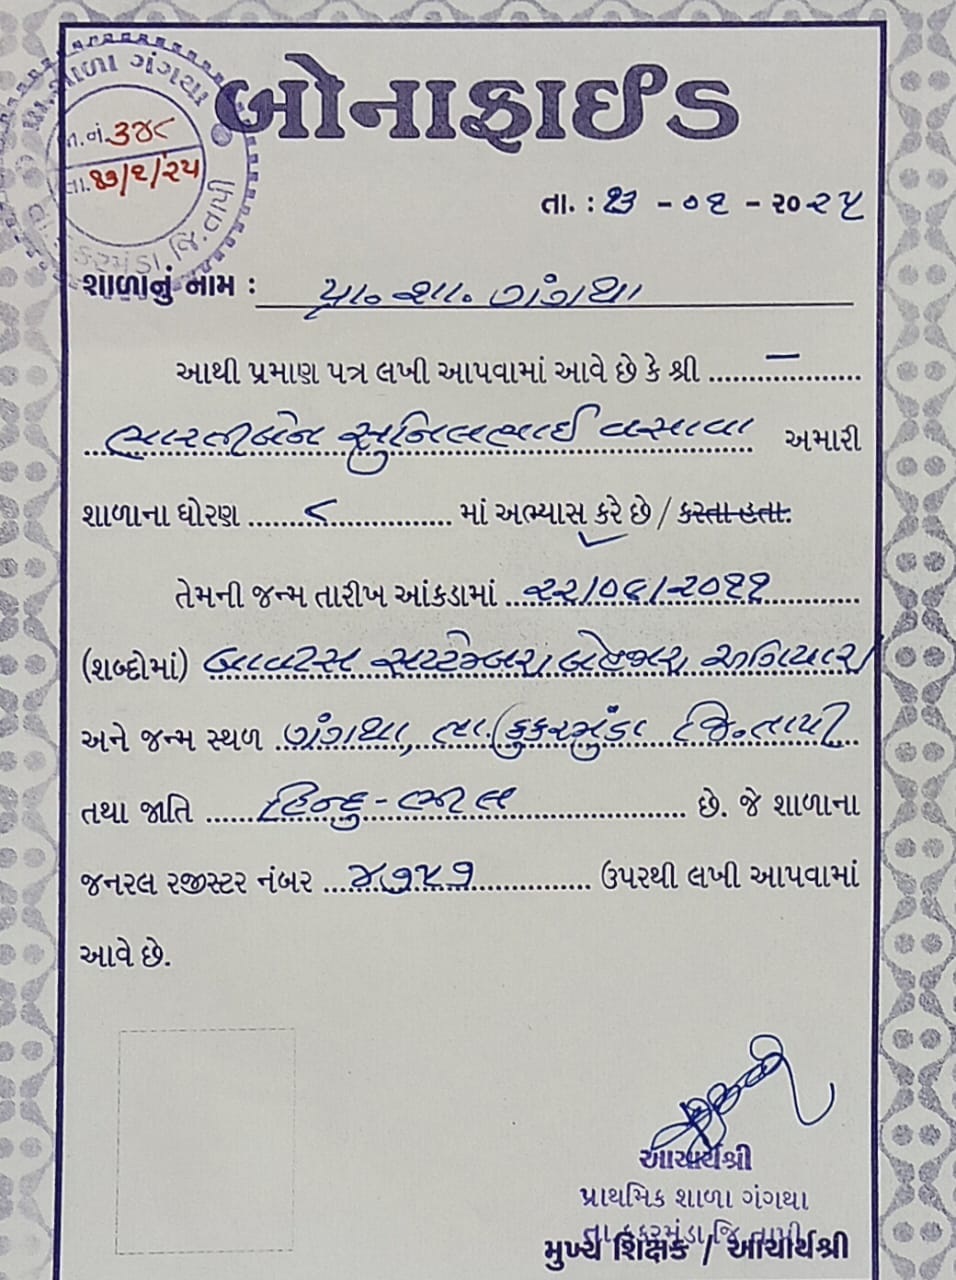 પ્રા. શાળા ગંગથા
જા.નં. ૩૪૮
તા. ૧૩/૧/૨૫
તા. કુકરમુંડા જિ. તાપી
બોનાફાઈડ
તા. : ૧૩ - ૦૧ - ૨૦૨૫
શાળાનું નામ : પ્રા. શા. ગંગથા
આથી પ્રમાણ પત્ર લખી આપવામાં આવે છે કે શ્રી ................
ભારતીબેન સુનિલભાઈ વસાવા અમારી
શાળાના ધોરણ ...... ૮ ............ માં અભ્યાસ કરે છે / કરતા હતા.
તેમની જન્મ તારીખ આંકડામાં ૨૨/૦૯/૨૦૧૧
(શબ્દોમાં) બાવીસ સપ્ટેમ્બર, બેહજાર, અગિયાર
અને જન્મ સ્થળ ગંગથા, તા. કુકરમુંડા જિ. તાપી
તથા જાતિ હિન્દુ - ભીલ છે. જે શાળાના
જનરલ રજીસ્ટર નંબર ૪૭૫૭ ઉપરથી લખી આપવામાં
આવે છે.
આચાર્યશ્રી
પ્રાથમિક શાળા ગંગથા
તા કુકરમુંડા જિ તાપી
મુખ્ય શિક્ષક / આચાર્યશ્રી